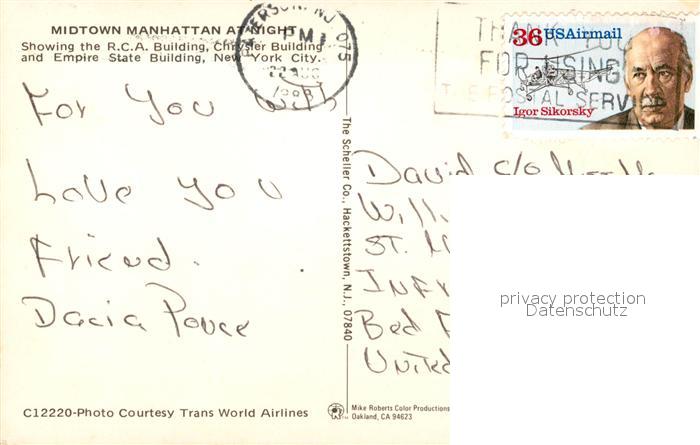 MIDTOWN MANHATTAN AT NIGHT
Showing the R.C.A. Building, Chrysler Building
and Empire State Building, New York City.
PATERSON, NJ 075
PM
22 AUG
THANK YOU
FOR USING
THE POSTAL SERVICE
36 USAirmail
Igor Sikorsky
For You With
Love You
Friend.
Dacia Ponce
The Scheller Co., Hackettstown, N.J., 07840
David c/o
Will
ST. M
INF
Bed
United
privacy protection
Datenschutz
C12220-Photo Courtesy Trans World Airlines
Mike Roberts Color Productions
Oakland, CA 94623